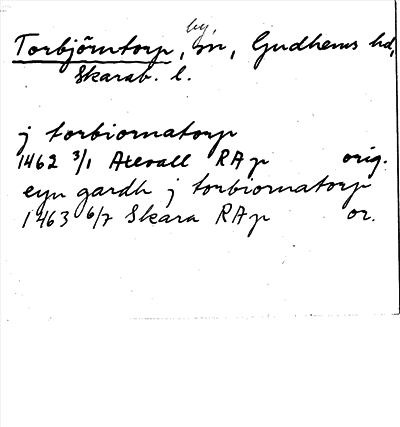 by,
Torbjörntorp, sn, Gudhems hd,
Skarab. l.
j torbiornatorp
1462 3/1 Axevall RAp orig.
eyn gardh j torbiornatorp
1463 6/7 Skara RAp or.